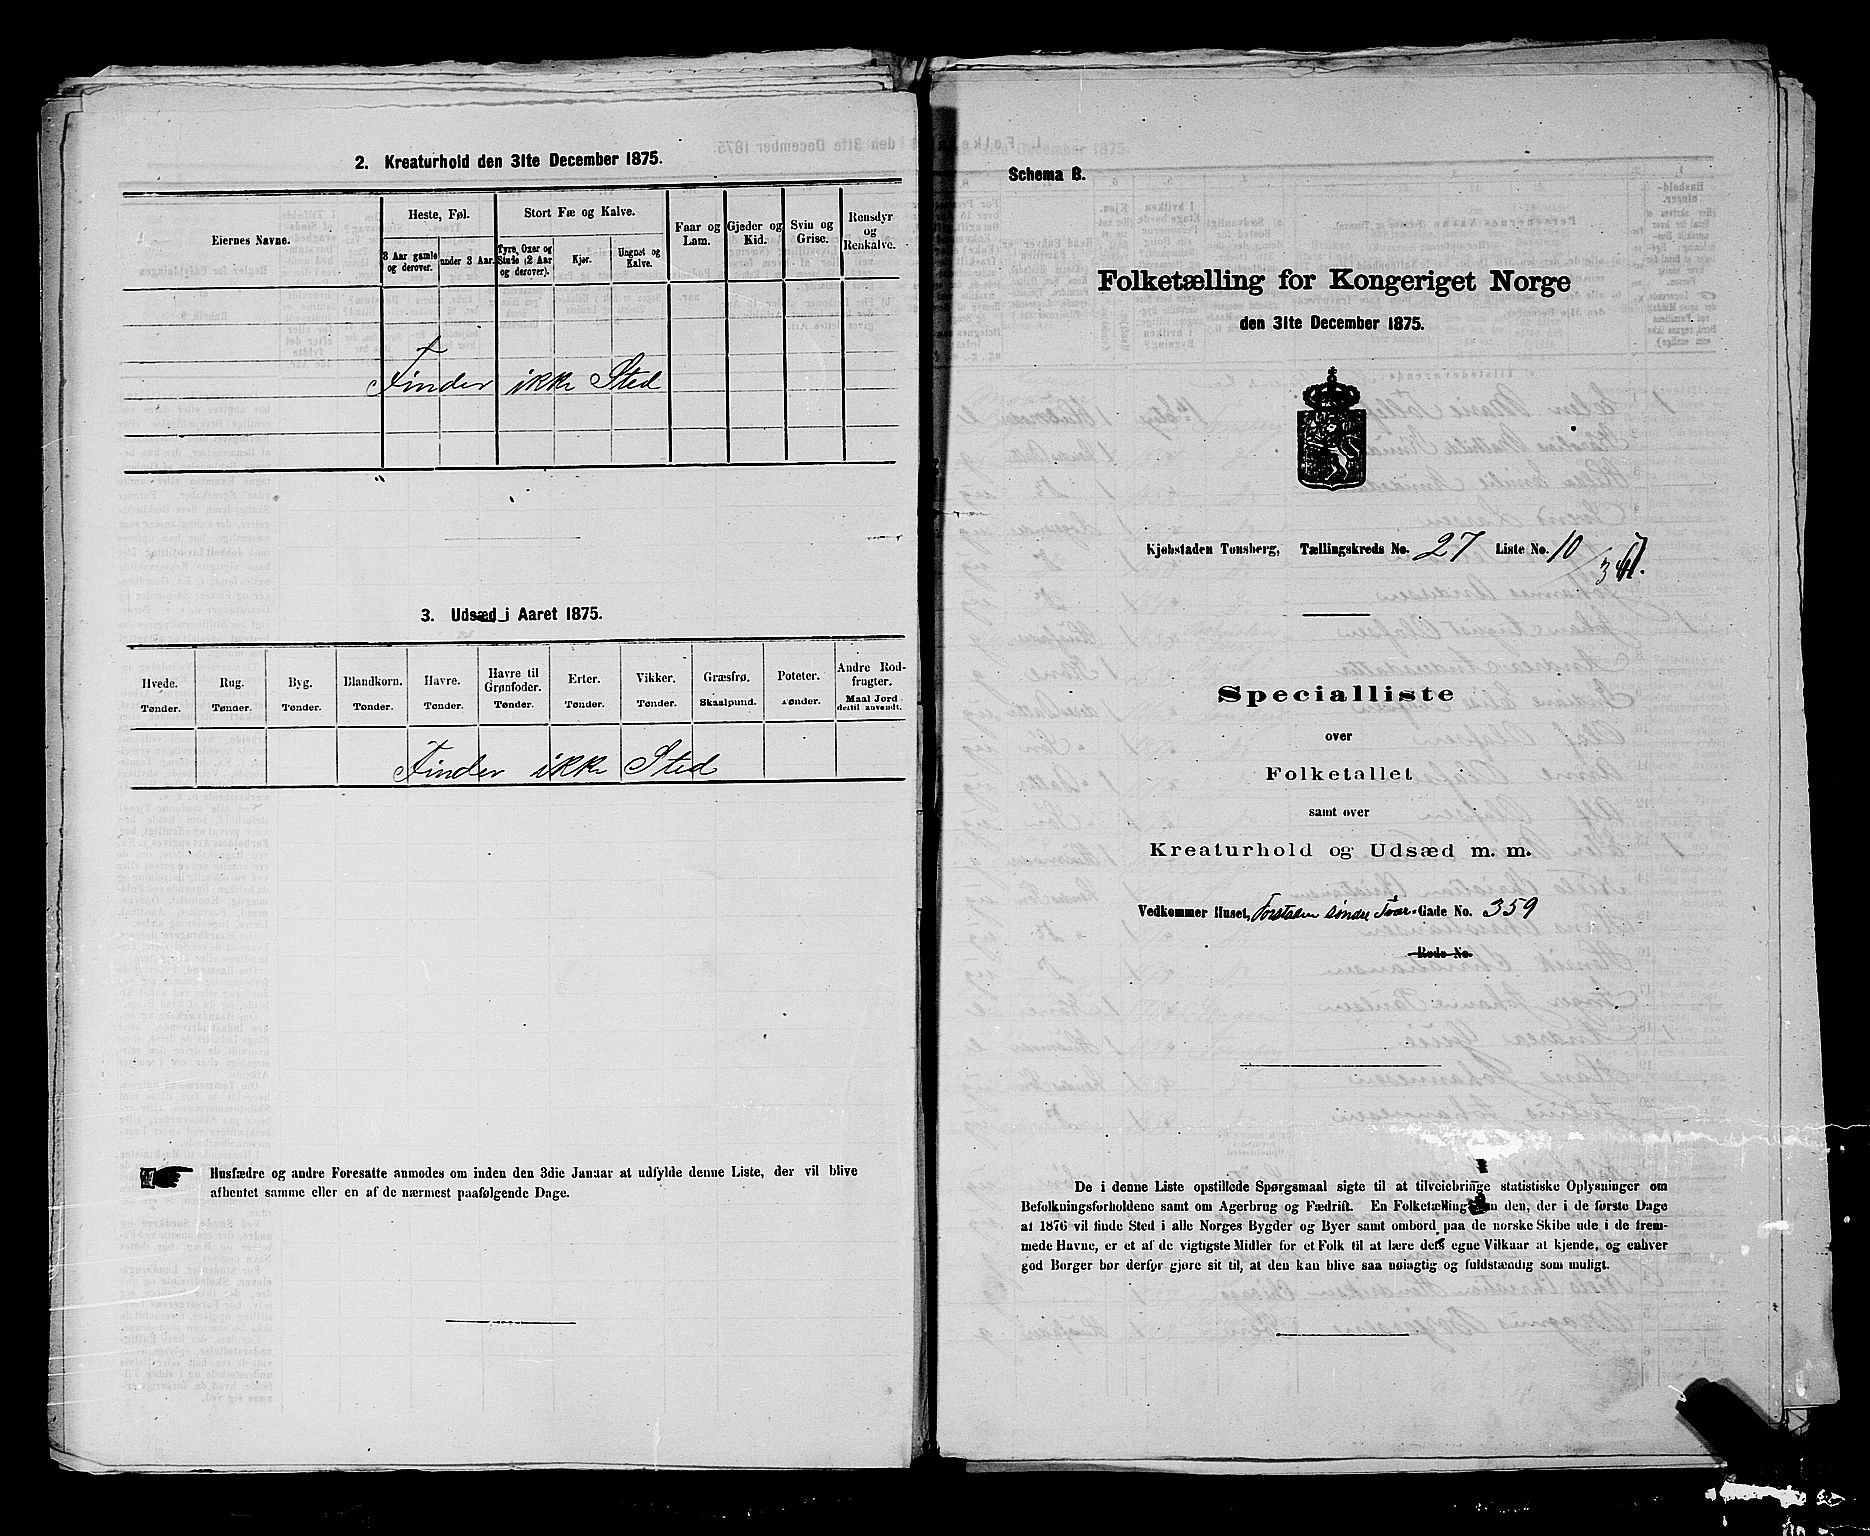 2. Kreaturhold den 31te December 1875.
Eiernes Navne.
Heste, Føl.
Stort Fæ og Kalve.
Faar og
Lam.
Gjeder og
Kid.
Svin og
Grise.
Rensdyr
og
Renkalve.
3 Aar gamle
og derover.
under 3 Aar.
Tyre, Oxer og
Stude (2 Aar
og derover).
Kjør.
Ungnøt og
Kalve.
Finder ikke Sted
3. Udsæd i Aaret 1875.
Hvede.
Tønder.
Rug.
Tønder.
Byg.
Tønder.
Blandkorn.
Tønder.
Havre.
Tønder.
Havre til
Grønfoder.
Tønder.
Erter.
Tønder.
Vikker.
Tønder.
Græsfrø.
Skaalpund.
Poteter.
Tønder.
Andre Rod-
frugter.
Maal Jord
dertil anvendt.
Finder ikke Sted
Husfædre og andre Foresatte anmodes om inden den 3die Januar at udfylde denne Liste, der vil blive
afhentet samme eller en af de nærmest paafølgende Dage.
Schema B.
Folketælling for Kongeriget Norge
den 31te December 1875.
Kjøbstaden Tønsberg, Tællingskreds No. 27 Liste No. 10
Specialliste
over
Folketallet
samt over
Kreaturhold og Udsæd m. m.
Vedkommer Huset, Forstaden søndre Tvær-Gade No. 359
Rode No.
De i denne Liste opstillede Spørgsmaal sigte til at tilveiebringe statistiske Oplysninger om
Befolkningsforholdene samt om Agerbrug og Fædrift. En Folketælling som den, der i de første Dage
af 1876 vil finde Sted i alle Norges Bygder og Byer samt ombord paa de norske Skibe ude i de frem-
mede Havne, er et af de vigtigste Midler for et Folk til at lære dets egne Vilkaar at kjende, og enhver
god Borger bør derfor gjøre sit til, at den kan blive saa nøiagtig og fuldstændig som muligt.